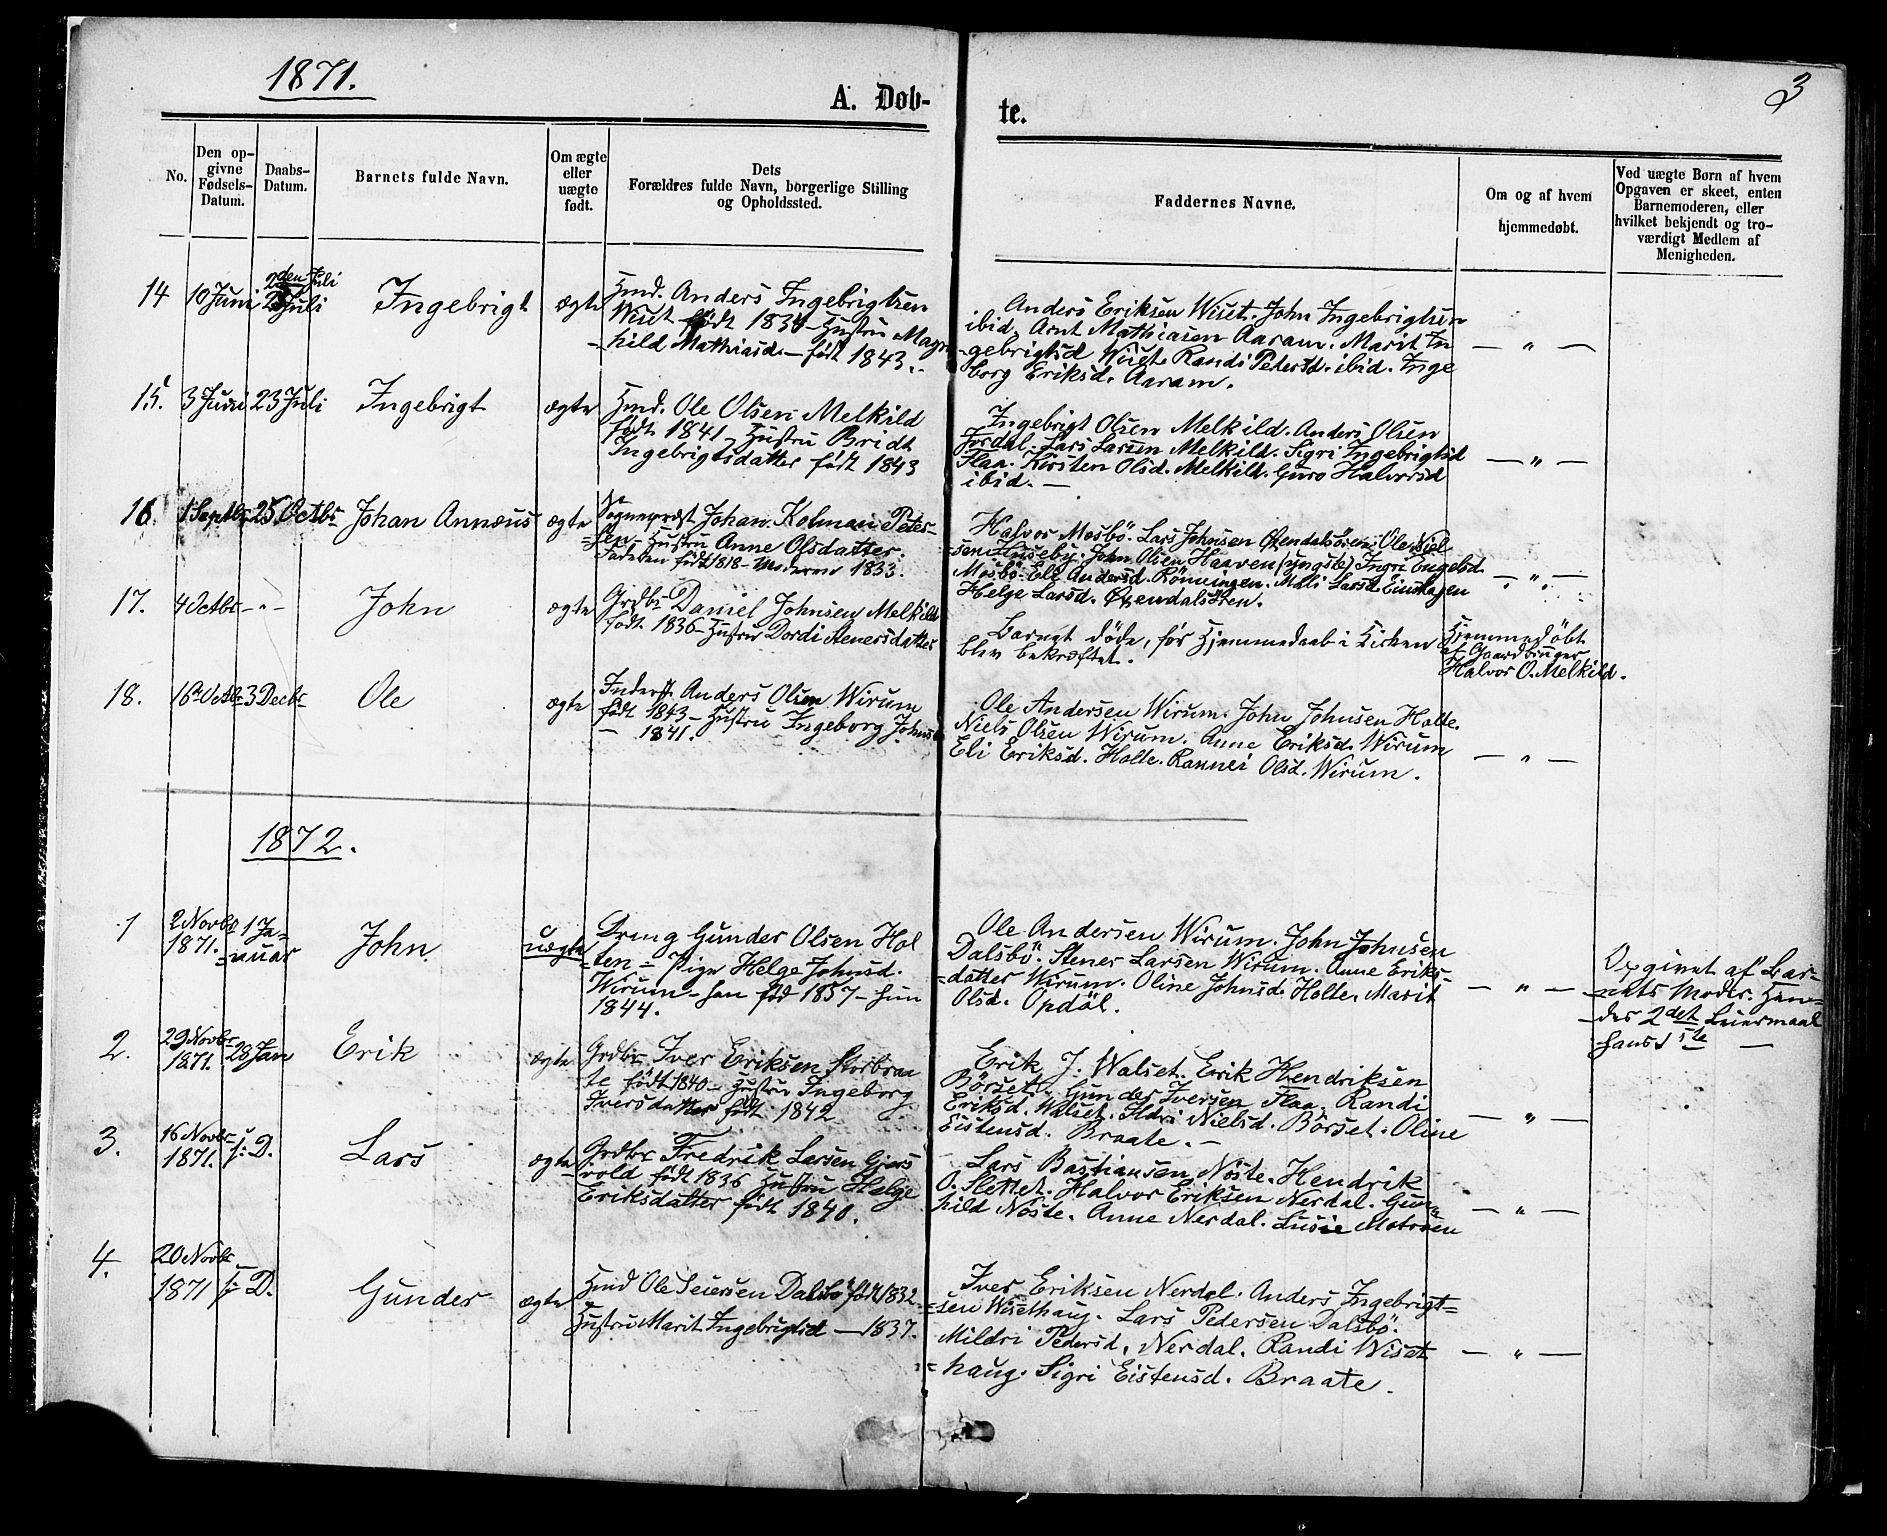 1871.
3
A. Døb-
te.
No.
Den op-
givne
Fødsels-
Datum.
Daabs-
Datum.
Barnets fulde Navn.
Om ægte
eller
uægte
født.
Dets
Forældres fulde Navn, borgerlige Stilling
og Opholdssted.
Faddernes Navne.
Om og af hvem
hjemmedøbt.
Ved uægte Børn af hvem
Opgaven er skeet, enten
Barnemoderen, eller
hvilket bekjendt og tro-
værdigt Medlem af
Menigheden.
14
10 Juni
2den Juli
Juli
Ingebrigt
ægte
Hmd. Anders Ingebrigtsen
Wiset født 1836 - Hustru Magn
-hild Mathiasd. - født 1843.-
Anders Eriksen Wiset. John Ingebrigtsen
ibid. Arnt Mathiasen Aaram. Marit In
-gebrigtsd Wiset. Randi Petersd. ibid. Inge
borg Eriksd. Aaram.
— " —
15.
3 Juni
23 Juli
Ingebrigt
ægte
Hmd. Ole Olsen Melkild
født 1841 - Hustru Bridt
Ingebrigtsdatter født 1843
Ingebrigt Olsen Melkild. Anders Olsen
Jordal. Lars Larsen Melkild. Sigri Ingebrigtsd
Flaa. Kirsten Olsd. Melkild. Guro Halvorsd
ibid. —
— " —
16.
1 Septbr
25 Octbr
Johan Annæus
ægte
Sogneprest Johan Kolman Peter-
-sen - Hustru Anne Olsdatter.
Faderen født 1818 - Moderen 1833.
Halvor Mosbö. Lars Johnsen Øxendalsören. Ole Niel
-sen Huseby. John Olsen Haaven (yngste) Ingri Engelsd
Mosbö. Eli Andersd. Rönningen. Mali Larsd.
Helge Larsd. Øxendalsören.
— " —
17.
4 Octbr
- " -
John
ægte
Grdbr Daniel Johnsen Melkild
født 1836 - Hustru Dordi Stenersdatter
Barnet døde, før Hjemmedaab i Kirken
blev bekræftet.
Hjemmedøbt
af Gaardbruger
Halvor O. Melkild.
18.
16 Octbr
3 Decbr
Ole
ægte
Inderst Anders Olsen Wirum
født 1843 - Hustru Ingeborg Johnsd
— 1841.
Ole Andersen Wirum. John Johnsen Holte.
Niels Olsen Wirum. Anne Eriksd. Wirum
Eli Eriksd. Holte. Rannei Olsd. Wirum.
— " —
1872.
1
2 Novbr
1871.
1 Ja-
-nuar
John
uægte
Dreng Gunder Olsen Hol
-ten - Pige Helge Johnsd.
Wirum - han fød 1857 - hun
1844.
Ole Andersen Wirum. John Johnsen
Dalsbö. Stener Larsen Wirum. Anne Eriks-
-datter Wirum. Oline Johnsd. Holte. Marit
Olsd. Opdöl.
— " —
Opgivet af Bar-
-nets Moder. Hen-
-des 2det Leiermaal
hans 1ste —
2.
29 Novbr
1871.
28 Jan
Erik
ægte
Grdbr Iver Eriksen Storbraa
te født 1840 - Hustru Ingeborg
Iversdatter født 1842
Erik J. Walset. Erik Hendriksen
Börset. Gunder Iversen Flaa. Randi
Eriksd. Walset. Sldri Nielsd. Börset. Oline
Eistensd. Braate. —
— " —
3.
16 Novbr
1871.
s: D.
Lars
ægte
Grdbr Fredrik Larsen Gjers
vold født 1836 Hustru Helge
Eriksdatter født 1840.
Lars Bastiansen Nöste. Hendrik
O. Slettet. Halvor Eriksen Nerdal. Gun-
hild Nöste. Anne Nerdal. Lusie
— " —
4.
20 Novbr
1871
s: D.
Gunder
ægte
Hmd Ole Seiersen Dalsbö født 1832.
Hustru Marit Ingebrigtsd — 1837.
Iver Eriksen Nerdal. Anders Ingebrigt-
-sen Wisethaug. Lars Pedersen Dalsbö.
Mildri Pedersd. Nerdal. Randi Wiset
-haug. Sigri Eistensd. Braate.
— " —